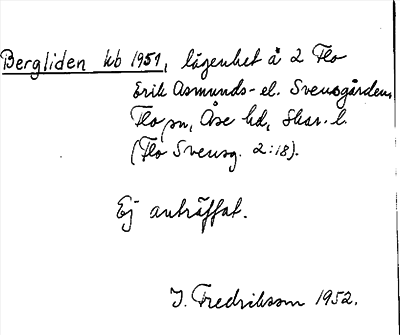 Bergliden kb 1951, lägenhet å 2 Flo
Erik Asmunds- el. Svensgården,
Flo sn, Åse hd, Skar. l.
(Flo Svensg. 2:18).
Ej anträffat.
I. Fredriksson 1952.